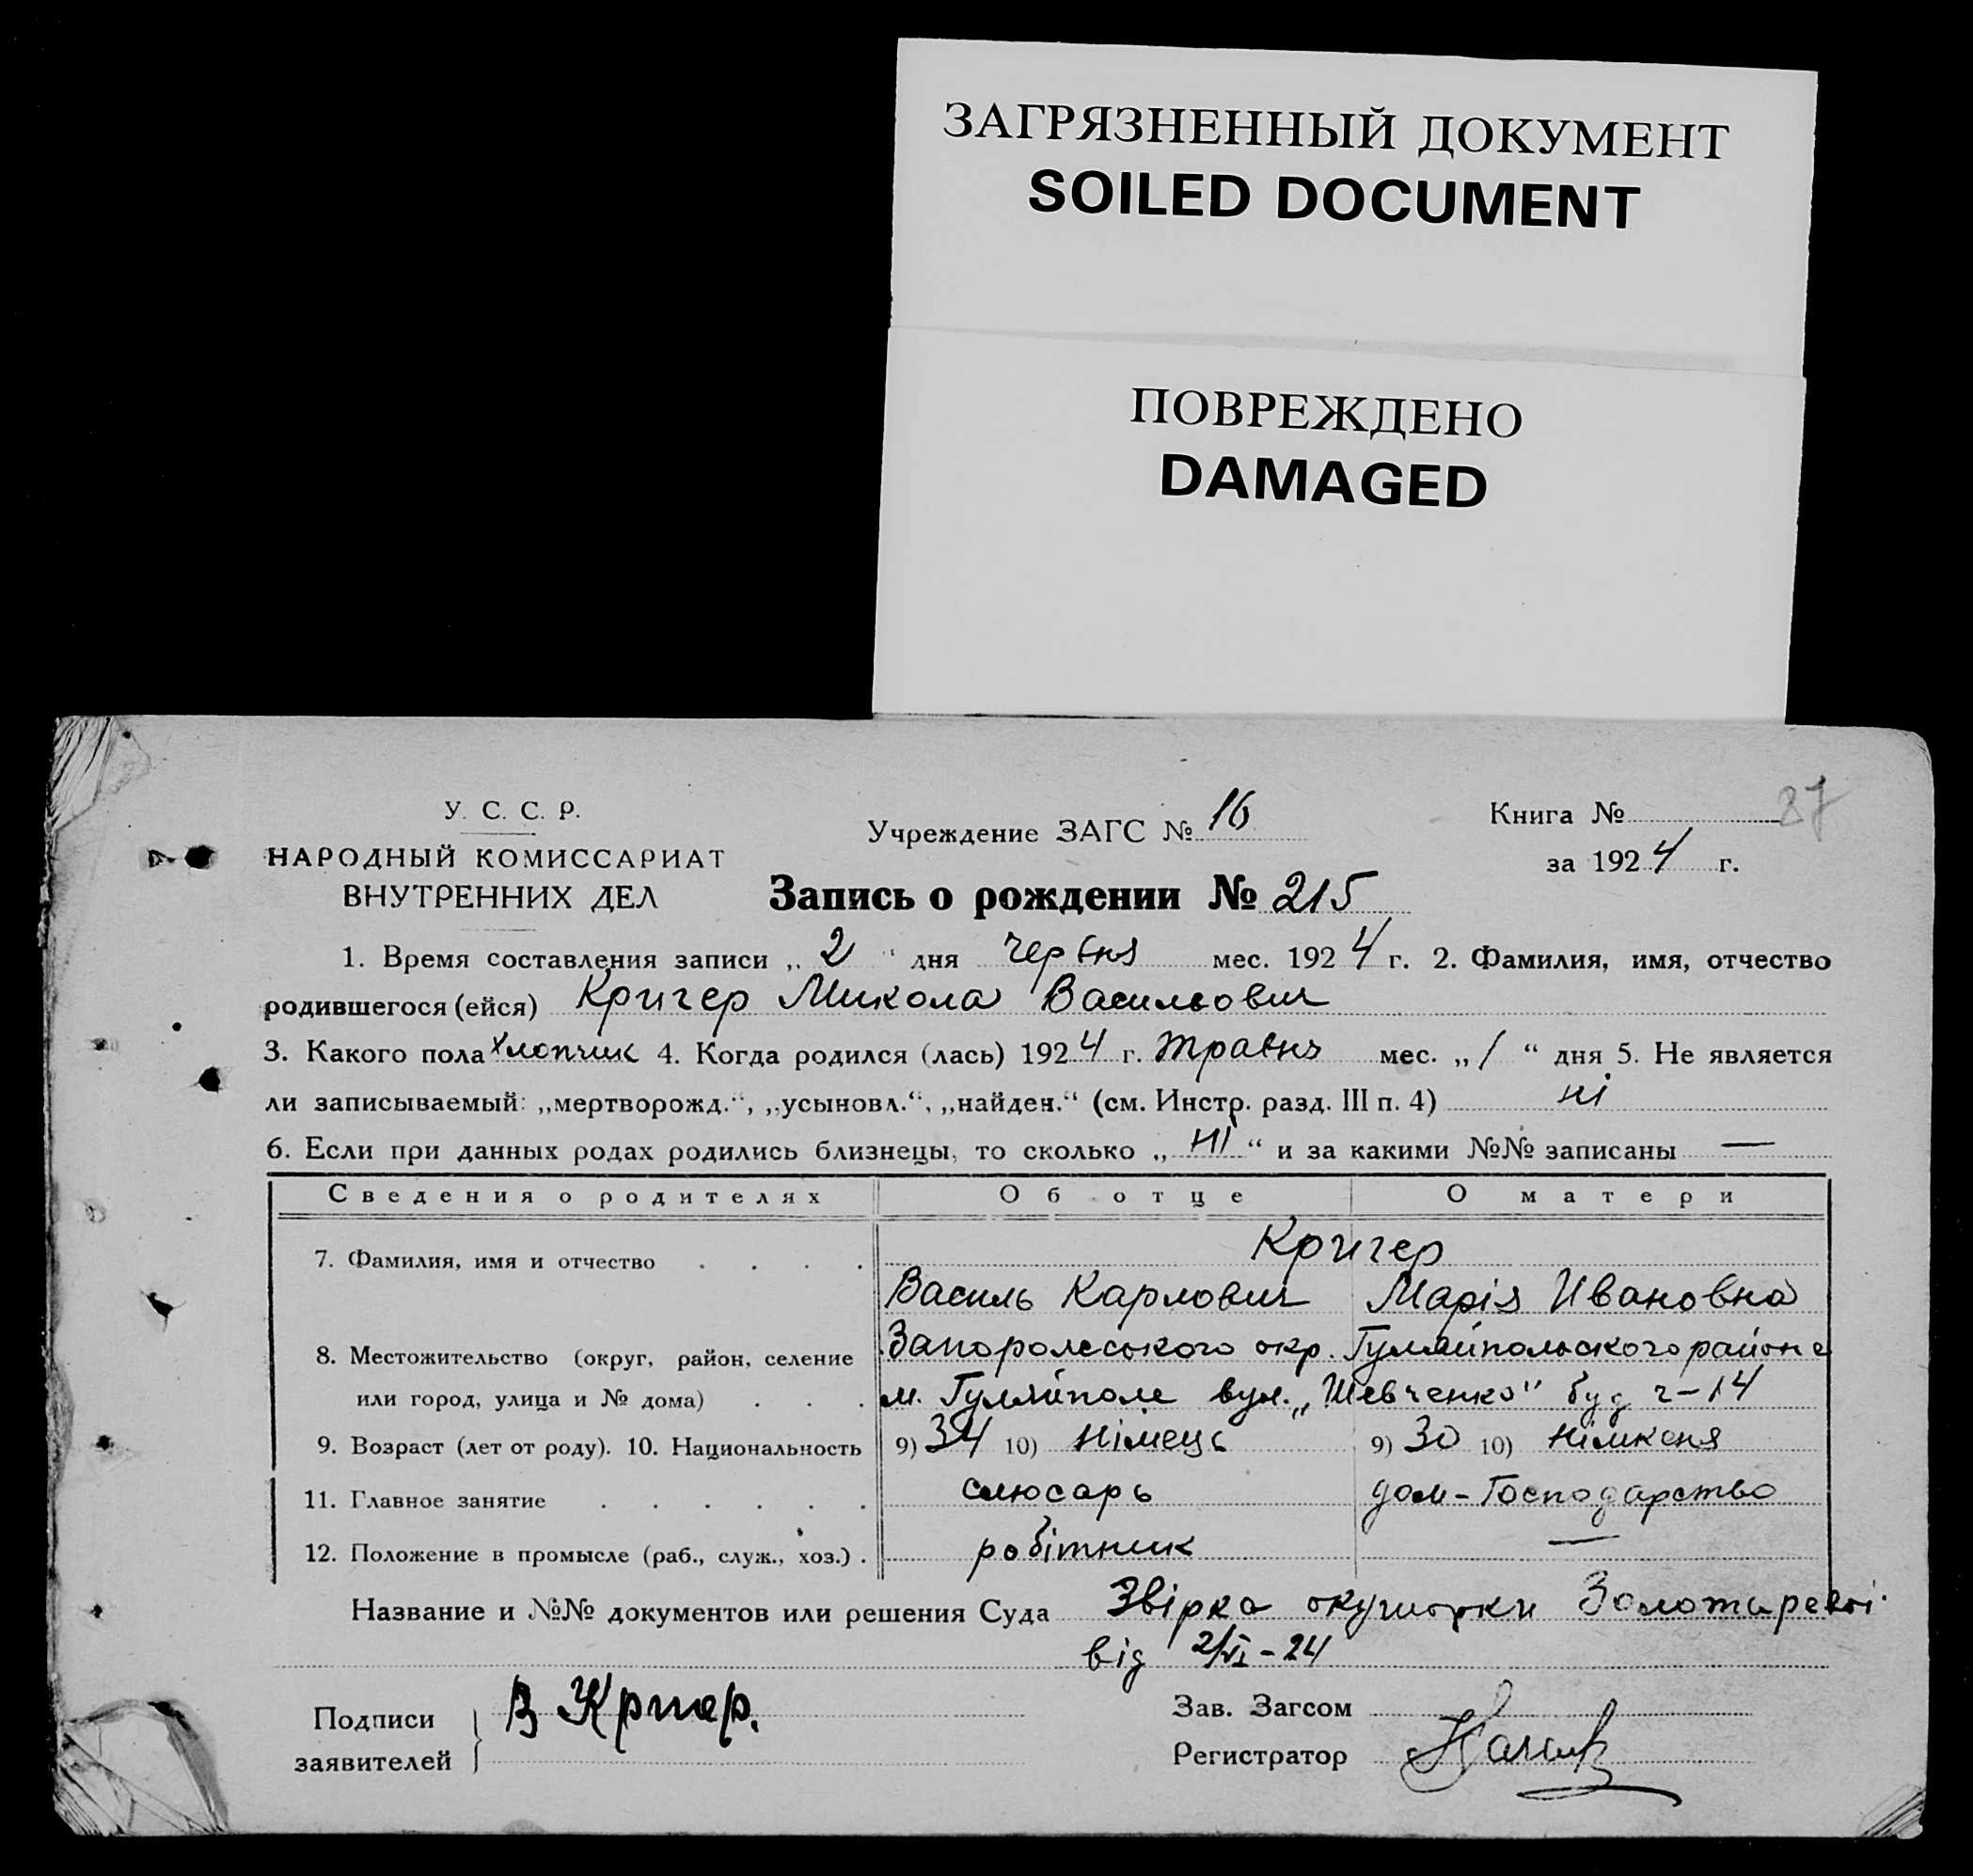 ЗАГРЯЗНЕННЫЙ ДОКУМЕНТ
SOILED DOCUMENT
ПОВРЕЖДЕНО
DAMAGED
У. С. С. Р.
НАРОДНЫЙ КОМИССАРИАТ
ВНУТРЕННИХ ДЕЛ
Учреждение ЗАГС № 16
Книга № 37
за 1924 г.
Запись о рождении № 215
1. Время составления записи „ 2 “ дня червня мес. 1924 г. 2. Фамилия, имя, отчество
родившегося (ейся) Кригер Микола Васильович
3. Какого пола хлопчик 4. Когда родился (лась) 1924 г. травня мес. „ 1 “ дня 5. Не является
ли записываемый: „мертворожд.“, „усыновл.“, „найден.“ (см. Инстр. разд. III п. 4) ні
6. Если при данных родах родились близнецы, то сколько „ ні “ и за какими №№ записаны —
Сведения о родителях Об отце О матери
7. Фамилия, имя и отчество . . . . Кригер
Василь Карлович Марія Ивановна
8. Местожительство (округ, район, селение Запоролсського окр. Гуляйпольского района
или город, улица и № дома) . . . м. Гуляйполе вул. „Шевченко“ буд ч-14
9. Возраст (лет от роду). 10. Национальность 9) 34 10) німець 9) 30 10) німкеня
11. Главное занятие . . . . . . слюсарь дом-Господарство
12. Положение в промысле (раб., служ., хоз.) . робітник —
Название и №№ документов или решения Суда Звірка окушорки Золотаревої
від 2/VI-24
Подписи
заявителей
В Кригер.
Зав. Загсом
Регистратор